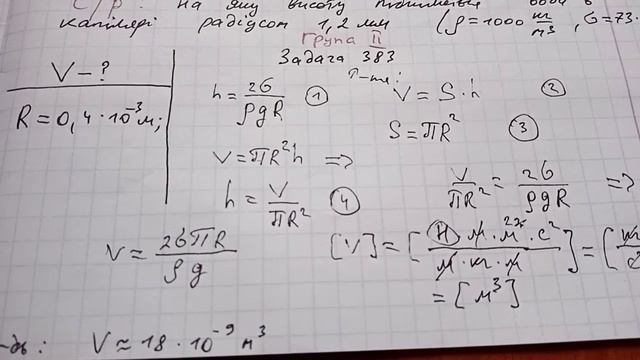 С/р: на яку висоту
капілярі радіусом 1,2 мм (ρ=1000 кг/м³, σ=73·
Група II
Задача 383
V – ?
R = 0,4·10⁻³ м;
h = 2σ/ρgR ①
V = S·h ②
S = πR² ③
V = πR²h =>
h = V/πR² ④
V/πR² = 2σ/ρgR =>
V = 2σπR/ρg
[V] = [Н·м·м²·с²/м·кг·м] = [
= [м³]
V ≈ 18·10⁻⁹ м³